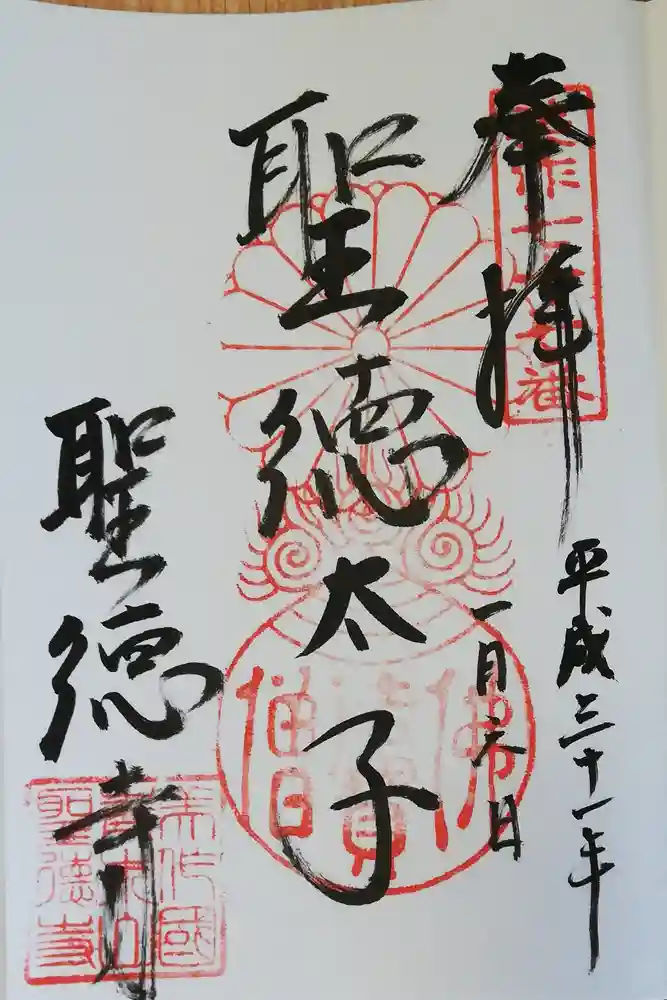 奉拝
平成三十一年
一月六日
聖徳太子
聖徳寺
佛
寶
僧
美作國
聖徳寺